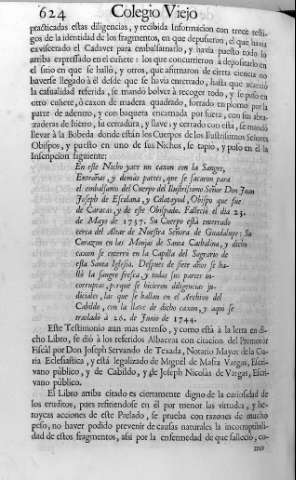 624 Colegio Viejo
practicadas estas diligencias, y recibida Informacion con trece testi-
gos de la identidad de los fragmentos, en que depusieron, el que havia
exviscerado el Cadaver para embalsamarlo, y havia puesto todo lo
arriba expressado en el cuñete: los que concurrieron à depositarlo en
el sitio en que se hallò, y otros, que afirmaron de cierta ciencia no
haverse llegado à èl desde que se havia enterrado, hasta que acaeciò
la casualidad referida, se mandò bolver à recoger todo, y se puso en
otro cuñete, ò caxon de madera quadrado, forrado en plomo por la
parte de adentro, y con baqueta encarnada por fuera, con sus abra-
zaderas de hierro, su cerradura, y llave: y cerrado con esta, se mandò
llevar à la Bobeda donde estàn los Cuerpos de los Ilustrissimos Señores
Obispos, y puesto en uno de sus Nichos, se tapiò, y puso en èl la
Inscripcion siguiente:
En este Nicho yace un caxon con la Sangre,
Entrañas, y demàs partes, que se sacaron para
el embalsamo del Cuerpo del Ilustrissimo Señor Don Juan
Joseph de Escalona, y Calatayud, Obispo que fue
de Caracas, y de este Obispado. Falleciò el dia 23.
de Mayo de 1737. Su Cuerpo està enterrado
cerca del Altar de Nuestra Señora de Guadalupe: Su
Corazon en las Monjas de Santa Cathalina, y dicho
caxon se enterrò en la Capilla del Sagrario de
esta Santa Iglesia. Despues de siete años se ha-
llò la sangre fresca, y todas sus partes in-
corruptas, porque se hicieron diligencias ju-
diciales, las que se hallan en el Archivo del
Cabildo, con la llave de dicho caxon, y aqui se
trasladò à 26. de Junio de 1744.
Este Testimonio aun mas extenso, y como està à la letra en di-
cho Libro, se diò à los referidos Albaceas con citacion del Promotor
Fiscal por Don Joseph Servando de Texada, Notario Mayor de la Cu-
ria Eclesiastica, y està legalizado de Miguel de Mafra Vargas, Escri-
vano pùblico, y de Cabildo, y de Joseph Nicolàs de Vargas, Escri-
vano pùblico.
El Libro arriba citado es ciertamente digno de la curiosidad de
los eruditos, pues refiriendose en èl por menor las virtudes, y he-
royeas acciones de este Prelado, se prueba con razones de mucho
peso, no haver podido prevenir de causas naturales la incorruptibili-
dad de estos fragmentos, assi por la enfermedad de que falleciò, co-